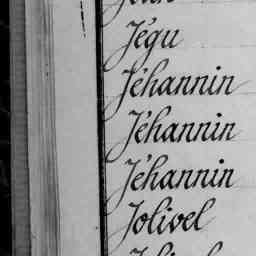 Jégu
Jéhannin
Jéhannin
Jéhannin
Jolivel